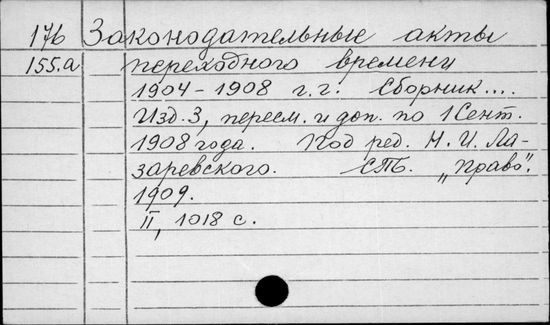 176 Законодательные акты
155.а переходного времени
1904-1908 г.г. Сборник....
Изд. 3, пересм. и доп. по 1 Сент.
1908 года. Под ред. Н. И. Ла-
заревского. СПБ. „Право".
1909.
II, 1018 с.